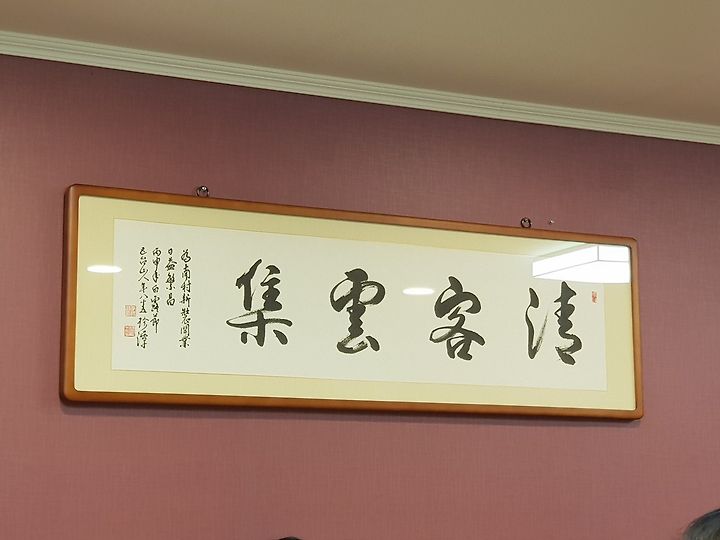 清客雲集
為南村新裝開業
日益繁昌
丙申年白露節